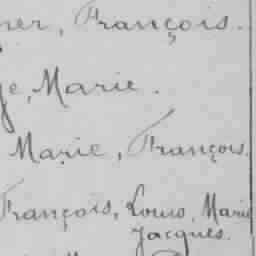 François.
Marie.
Marie, François.
François, Louis, Marie
Jacques.